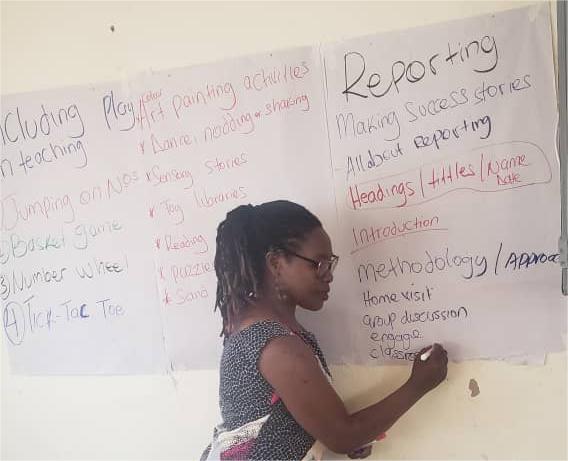 cluding Play
n teaching
Jumping on NOs
Basket game
③ Number Wheel
④ Tick-Tac Toe
Art painting activities
* Dance, nodding or shaking
* Sensory stories
* Toy libraries
* Reading
* puzzle
* Sand
Reporting
Making Success stories
All about Reporting
Headings / tittles / Name
Date
Introduction
Methodology / Approa
Home visit
Group discussion
engage
classroo